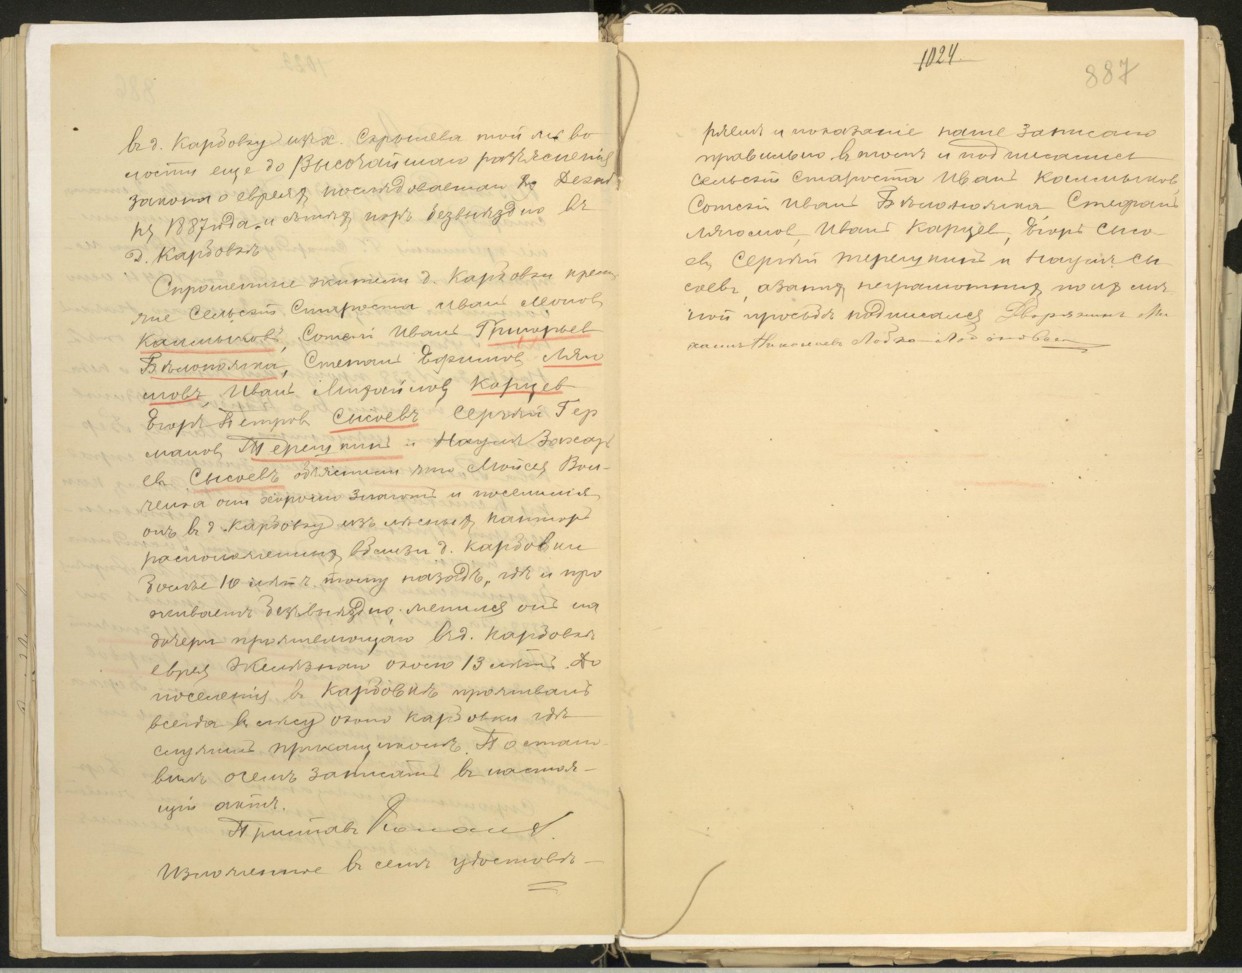 въ д. Карбовку изъ х. Скрылева той же во
лости еще до Высочайшаго разъясненія
закона о евреяхъ последовавшаго въ Декаб
рѣ 1887 года и съ тѣхъ поръ безвыѣздно въ
д. Карбовкѣ
Спрошенные жители д. Карбовки крест
яне Сельскій Староста Иванъ
Калмыковъ, Сотскій Иванъ Григорьев
Бѣлоножка, Степанъ Ефимов Ляго
мовъ, Иванъ Михайлов Карцев
Егоръ Петров Сысоевъ Сергѣй Гер
манов Терешкинъ и Наумъ Захар
ев Сысоевъ объяснили что Мойсея Вол
ченка они хорошо знаютъ и поселился
онъ въ д. Карбовку изъ лѣсныхъ канторъ
расположенныхъ вблизи д. Карбовки
болѣе 10 лѣтъ тому назадъ, гдѣ и про
живаетъ безвыѣздно, женился онъ на
дочери проживающаго въ д. Карбовкѣ
еврея около 13 лѣтъ. До
поселенія въ Карбовкѣ проживалъ
всегда въ лѣсу около Карбовки гдѣ
служилъ прикащикомъ. Постано
вилъ о чемъ записать въ настоя-
щій актъ.
Приставъ
Изложенное въ семъ удостовѣ-
1024
887
ряемъ и показаніе наше записано
правильно въ томъ и подписались
Сельскій Староста Иванъ Калмыковъ
Сотскій Иванъ Бѣлоножка Стефанъ
Лягомов, Иванъ Карцев, Егоръ Сысо-
ев, Сергѣй Терешкинъ и Наумъ Сы
соевъ, а за нихъ неграмотныхъ по ихъ лич
ной просьбѣ подписался Дворянинъ Ми
хаилъ Николаевъ